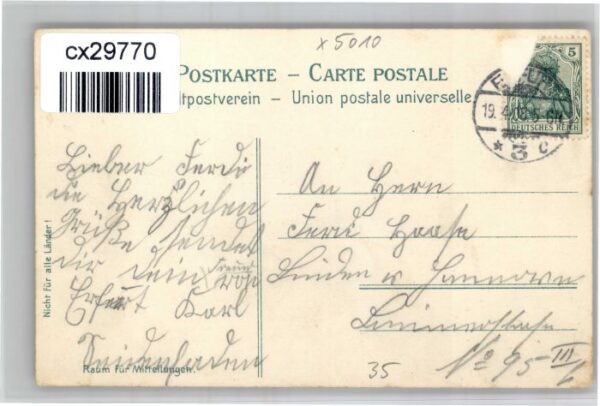 cx29770
x 5010
POSTKARTE – CARTE POSTALE
tpostverein – Union postale universelle
5
DEUTSCHES REICH
19. 4.
3 c
Lieber Ferdi
die Herzlichen
Grüße sendet
dir dein Freund
von
Erfurt Karl
Seidenfaden
Nicht für alle Länder!
Raum für Mitteilungen.
An Herrn
Ferdi Haase
Linden b Hannover
Limmerstraße
35
No 95 III